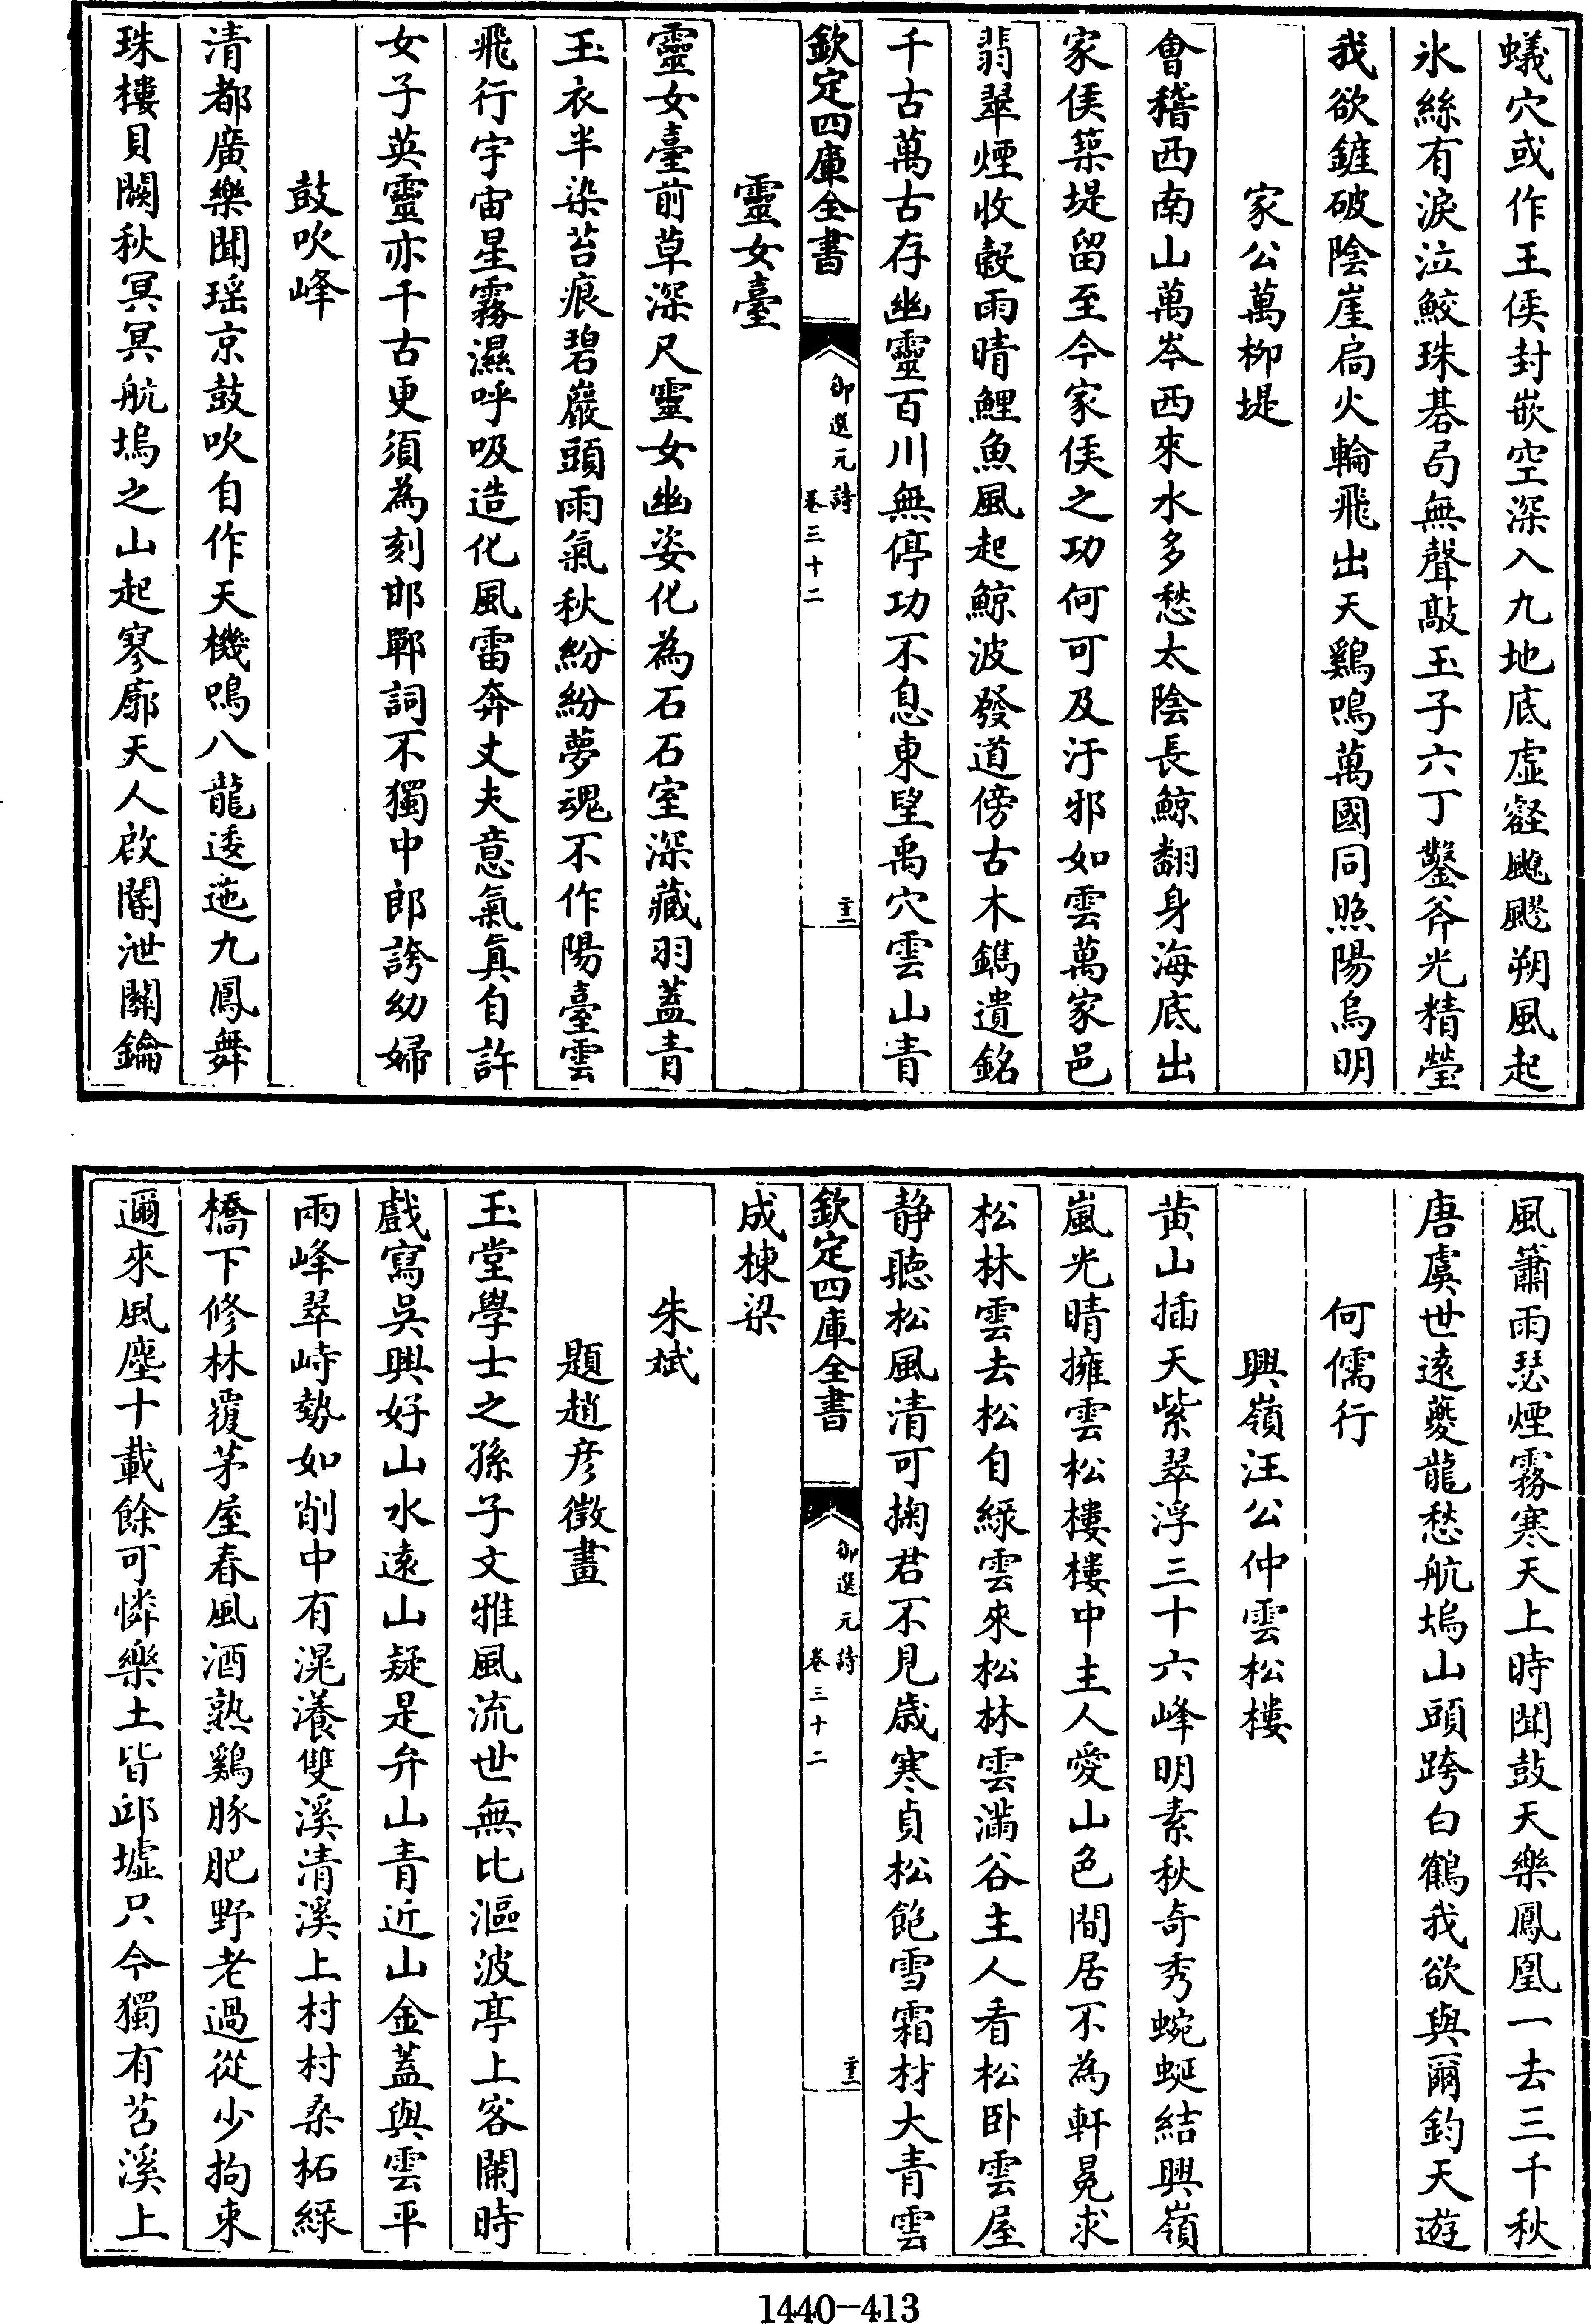 蟻穴或作王侯封嵌空深入九地底虛壑颼飀朔風起
氷絲有淚泣鮫珠碁局無聲敲玉子六丁鑿斧光精瑩
我欲鏟破陰崖扃火輪飛出天鷄鳴萬國同照陽烏明
家公萬柳堤
會稽西南山萬岑西來水多愁太陰長鯨翻身海底出
家侯築堤留至今家侯之功何可及汙邪如雲萬家邑
翡翠煙收縠雨晴鯉魚風起鯨波發道傍古木鐫遺銘
千古萬古存幽靈百川無停功不息東望禹穴雲山青
欽定四庫全書
御選元詩
卷三十二
靈女臺
靈女臺前草深尺靈女幽姿化為石石室深藏羽蓋青
玉衣半染苔痕碧巖頭雨氣秋紛紛夢魂不作陽臺雲
飛行宇宙星霧濕呼吸造化風雷奔丈夫意氣真自許
女子英靈亦千古更須為刻邯鄲詞不獨中郎誇幼婦
鼓吹峰
清都廣樂聞瑤京鼓吹自作天機鳴八龍逶迤九鳳舞
珠樓貝闕秋冥冥航塢之山起寥廓天人啟闔泄關鑰
風簫雨瑟煙霧寒天上時聞鼓天樂鳳凰一去三千秋
唐虞世遠夔龍愁航塢山頭跨白鶴我欲與爾鈞天遊
何儒行
興嶺汪公仲雲松樓
黃山插天紫翠浮三十六峰明素秋奇秀蜿蜒結興嶺
嵐光晴擁雲松樓樓中主人愛山色間居不為軒冕求
松林雲去松自綠雲來松林雲滿谷主人看松卧雲屋
静聽松風清可掬君不見歲寒貞松飽雪霜材大青雲
欽定四庫全書
御選元詩
卷三十二
成棟梁
朱斌
題趙彥徵畫
玉堂學士之孫子文雅風流世無比漚波亭上客闌時
戲寫吳興好山水遠山疑是弁山青近山金蓋與雲平
兩峰翠峙勢如削中有滉瀁雙溪清溪上村村桑柘綠
橋下修林覆茅屋春風酒熟鷄豚肥野老過從少拘束
邇來風塵十載餘可憐樂土皆邱墟只今獨有苕溪上
1440-413